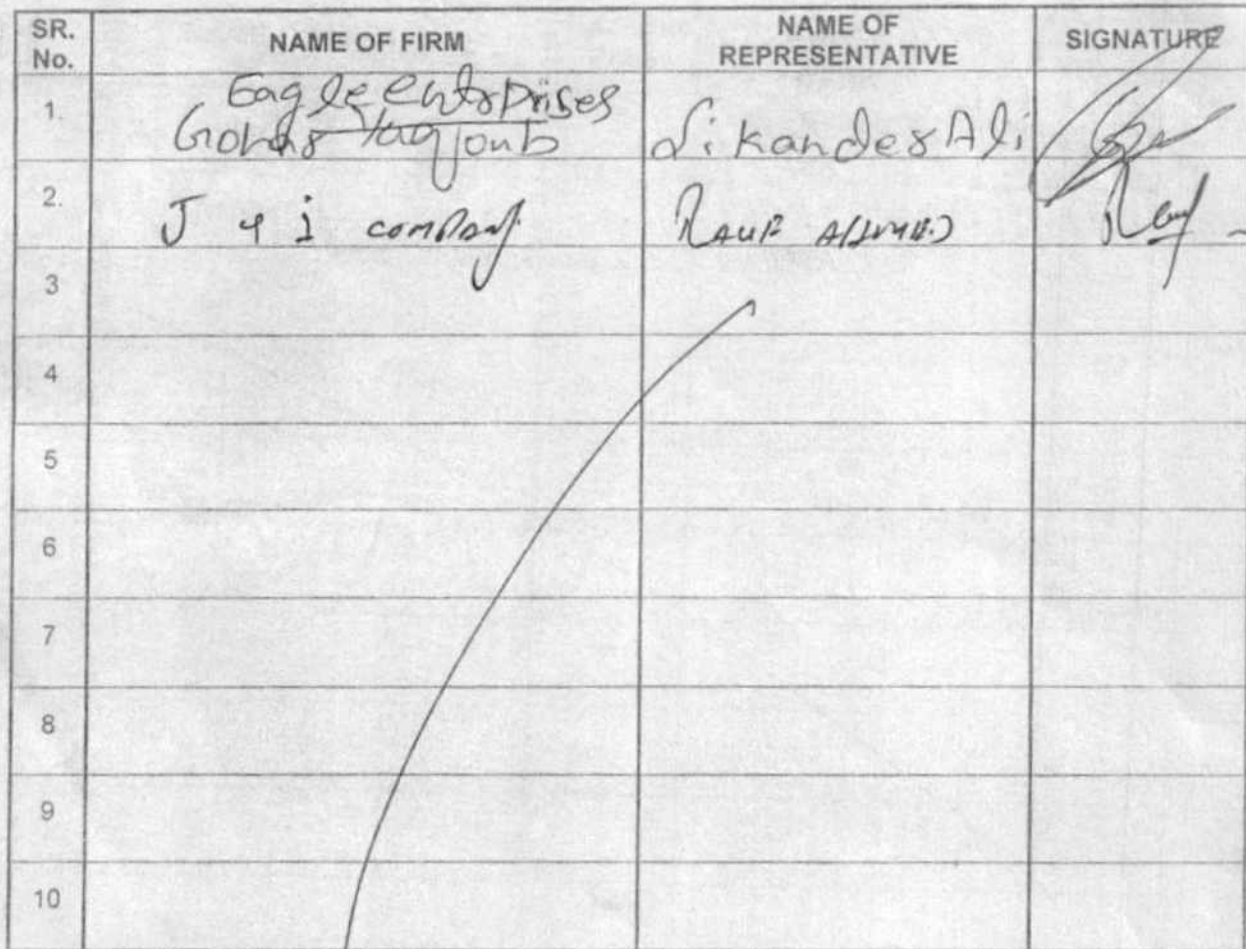 SR. No. NAME OF FIRM NAME OF REPRESENTATIVE SIGNATURE
1. Eagle Enterprises
Gohar Yaqoub Sikander Ali
2. J & i company Rauf AHMED
3
4
5
6
7
8
9
10